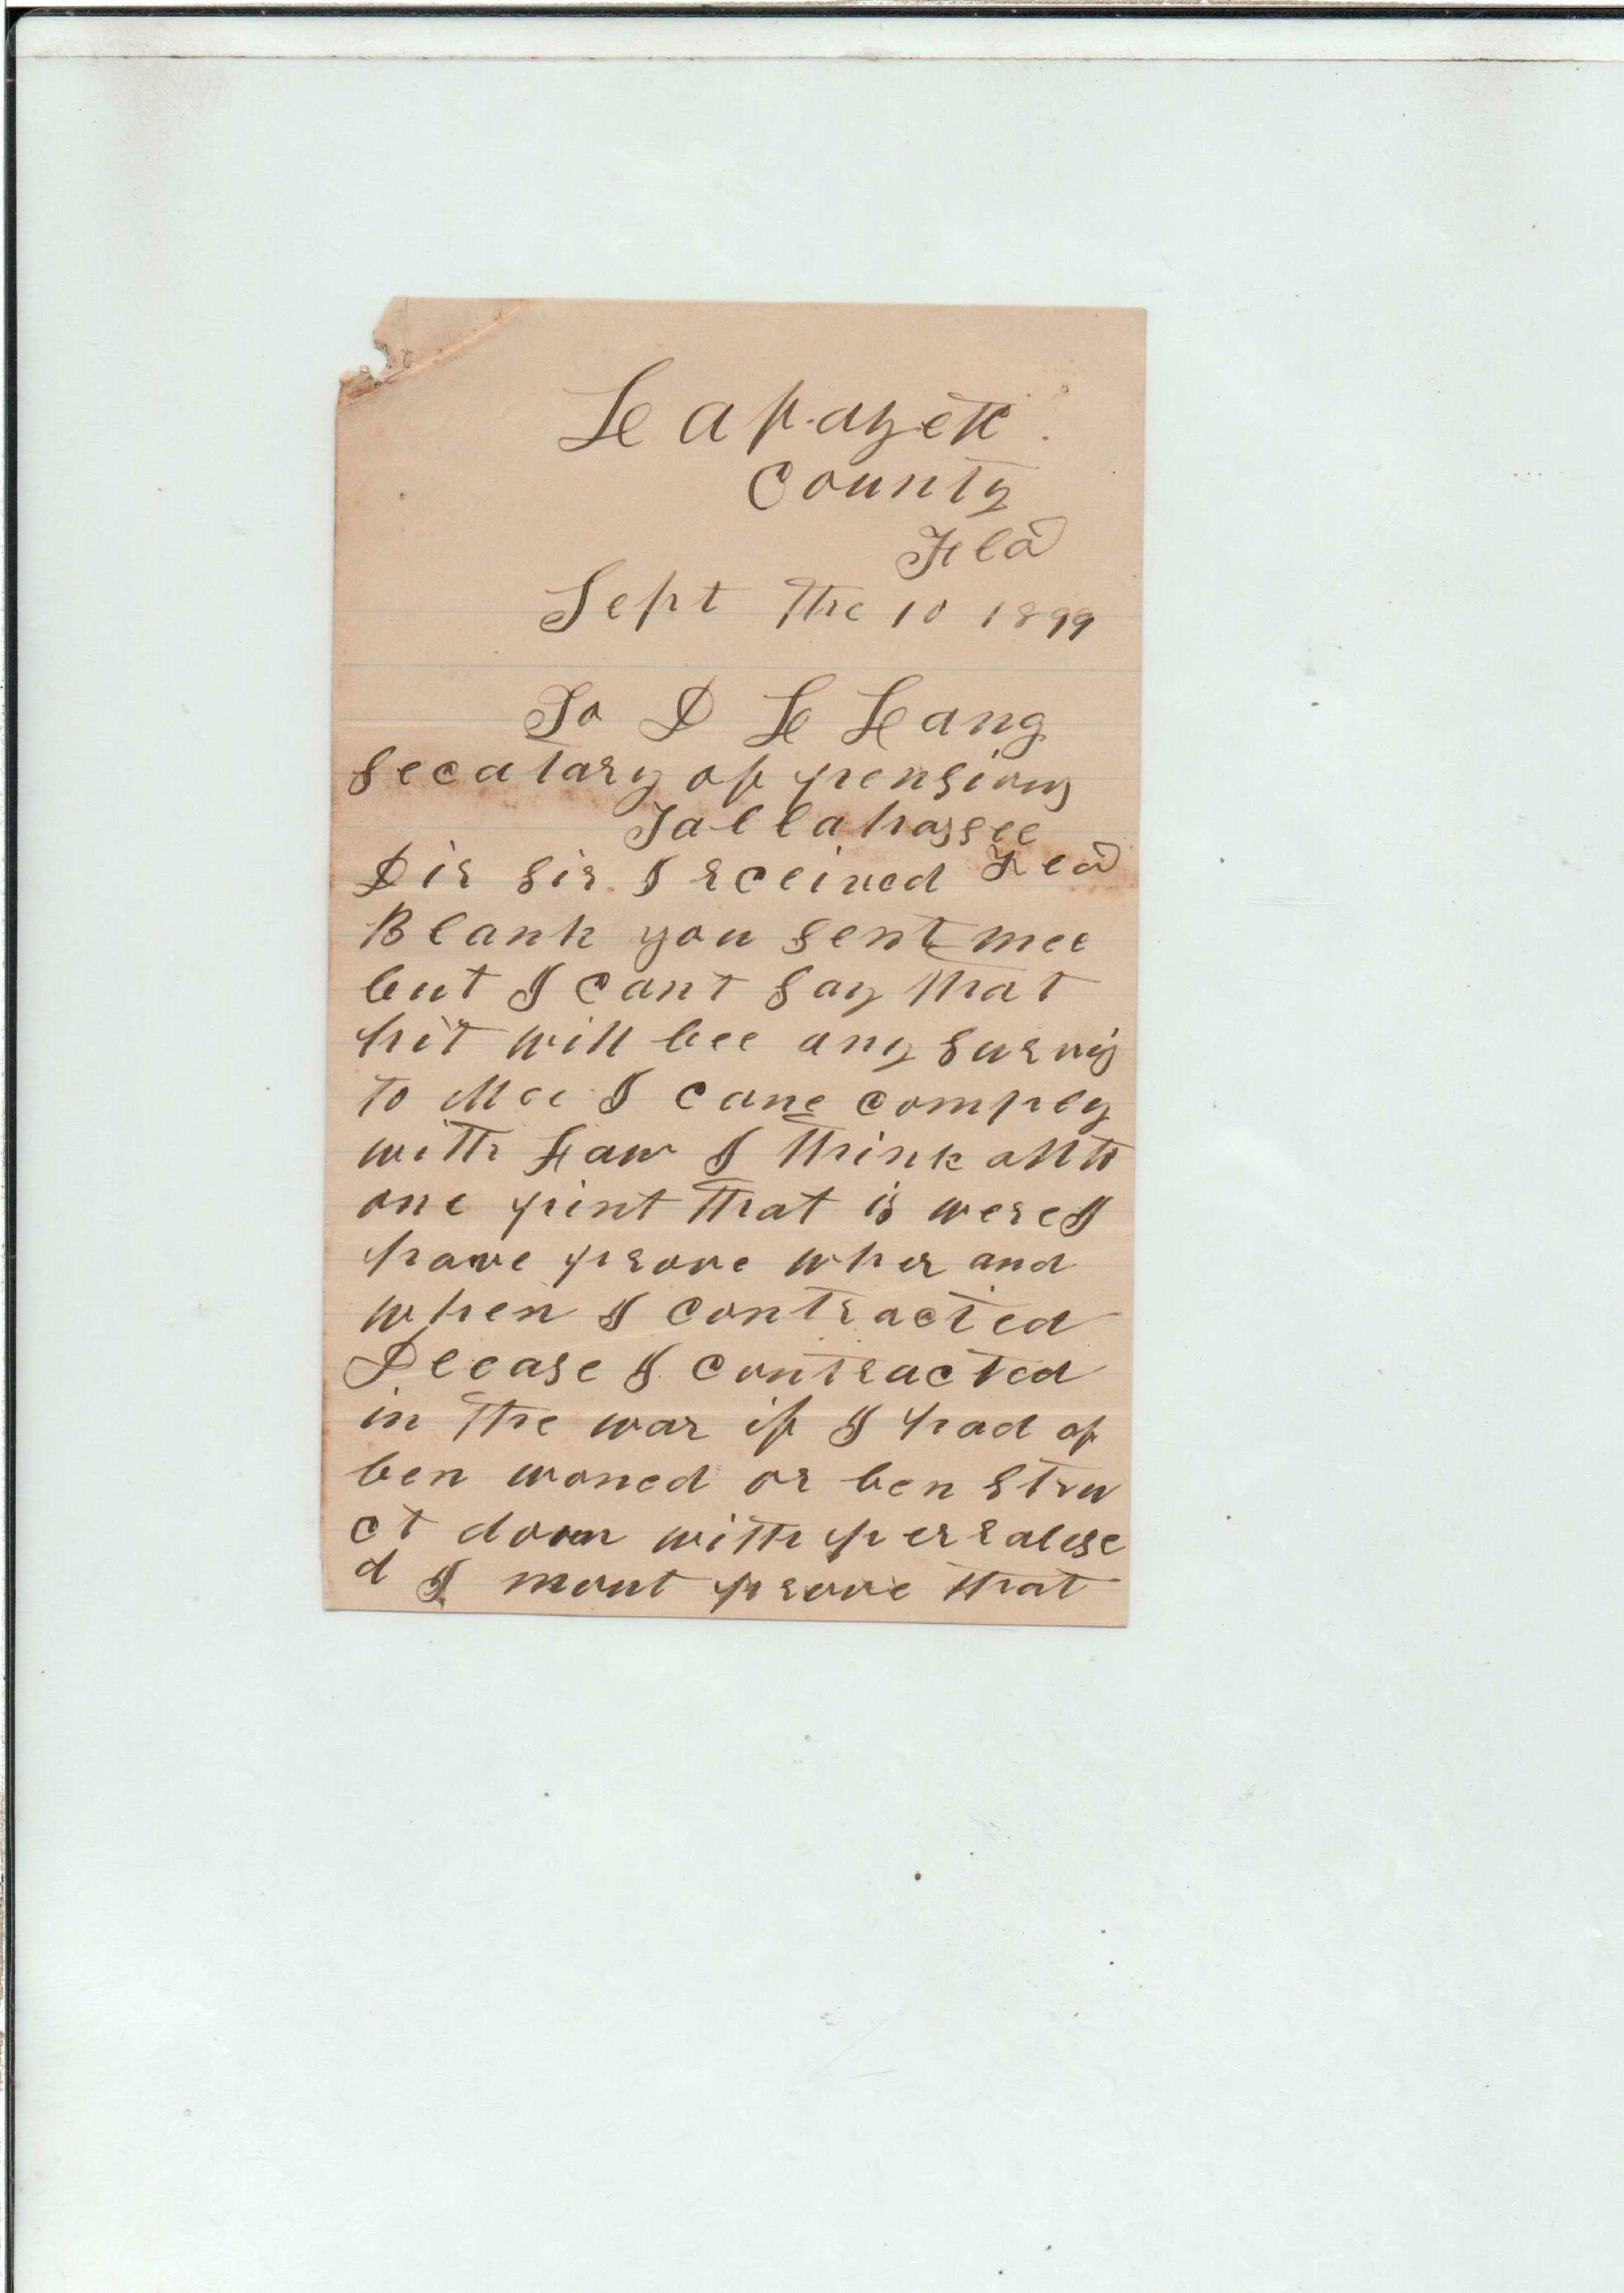 Lafayett
County
Fla
Sept the 10 1899
To D L Lang
Secatary of pensions
Tallahassee
Fla
Dir sir I rceived
Blank you sent mee
but I cant say that
hit will bee any survis
to Mee I cane comply
with Law I think all to
one pint that is were I
have prove wher and
when I contracted
Deease I contracted
in the war if I had of
ben woned or ben stru
ct down with perralise
d I mout prove that